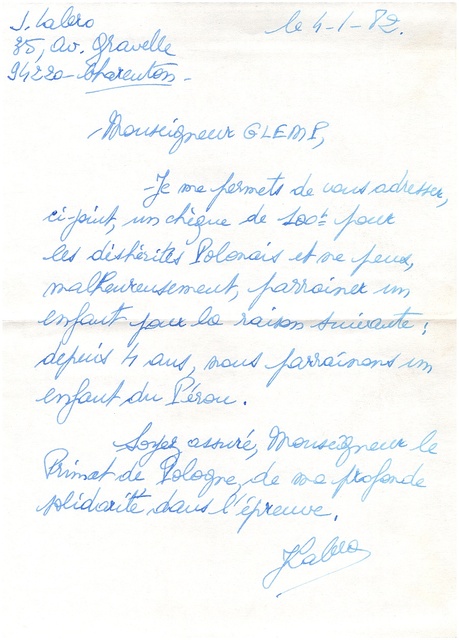 J. Calero
35, av. Gravelle
94220 - Charenton -
le 4-1-82.
Monseigneur GLEMP,
- Je me permets de vous adresser,
ci-joint, un chèque de 100f pour
les déshérités Polonais et ne peux,
malheureusement, parrainer un
enfant pour la raison suivante :
depuis 4 ans, nous parrainons un
enfant du Pérou.
Soyez assuré, Monseigneur le
Primat de Pologne, de ma profonde
solidarité dans l'épreuve.